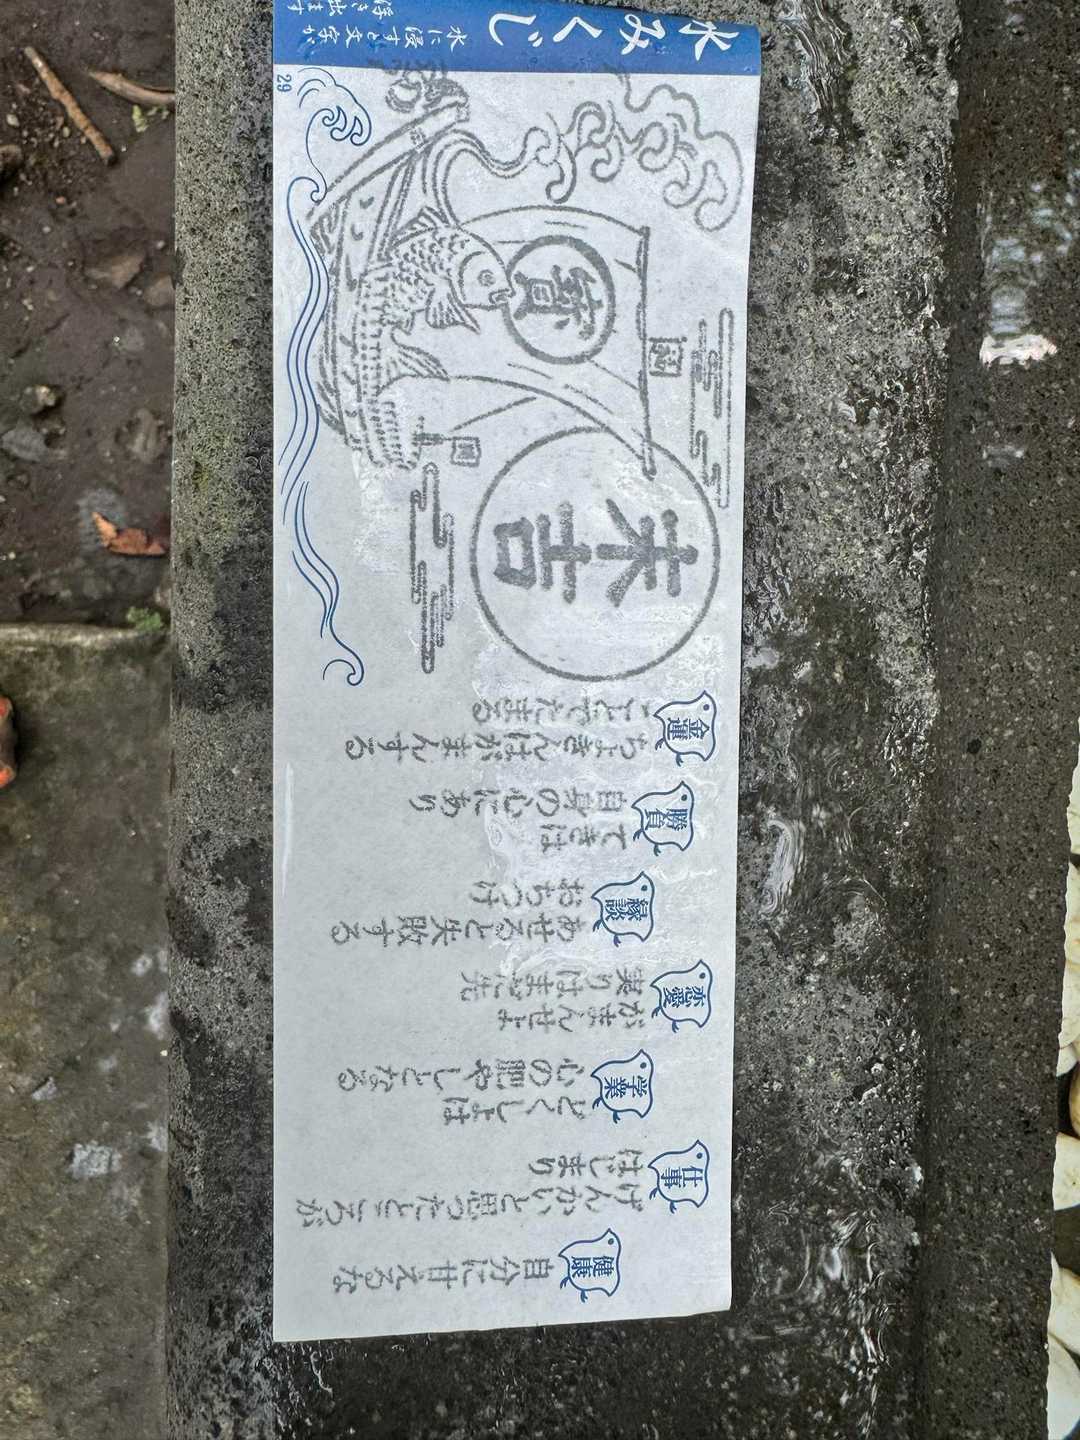 健康
自分に甘えるな
仕事
げんかいと思ったところが
はじまり
学業
どくしょは
心の肥やしとなる
恋愛
がまんせよ
実りはまだ先
縁談
あせると失敗する
おちつけ
勝負
てきは
自身の心にあり
金運
ちょきんはがまんする
ことでたまる
末吉
寳
水みくじ
水に浸すと文字が
浮き出ます
29